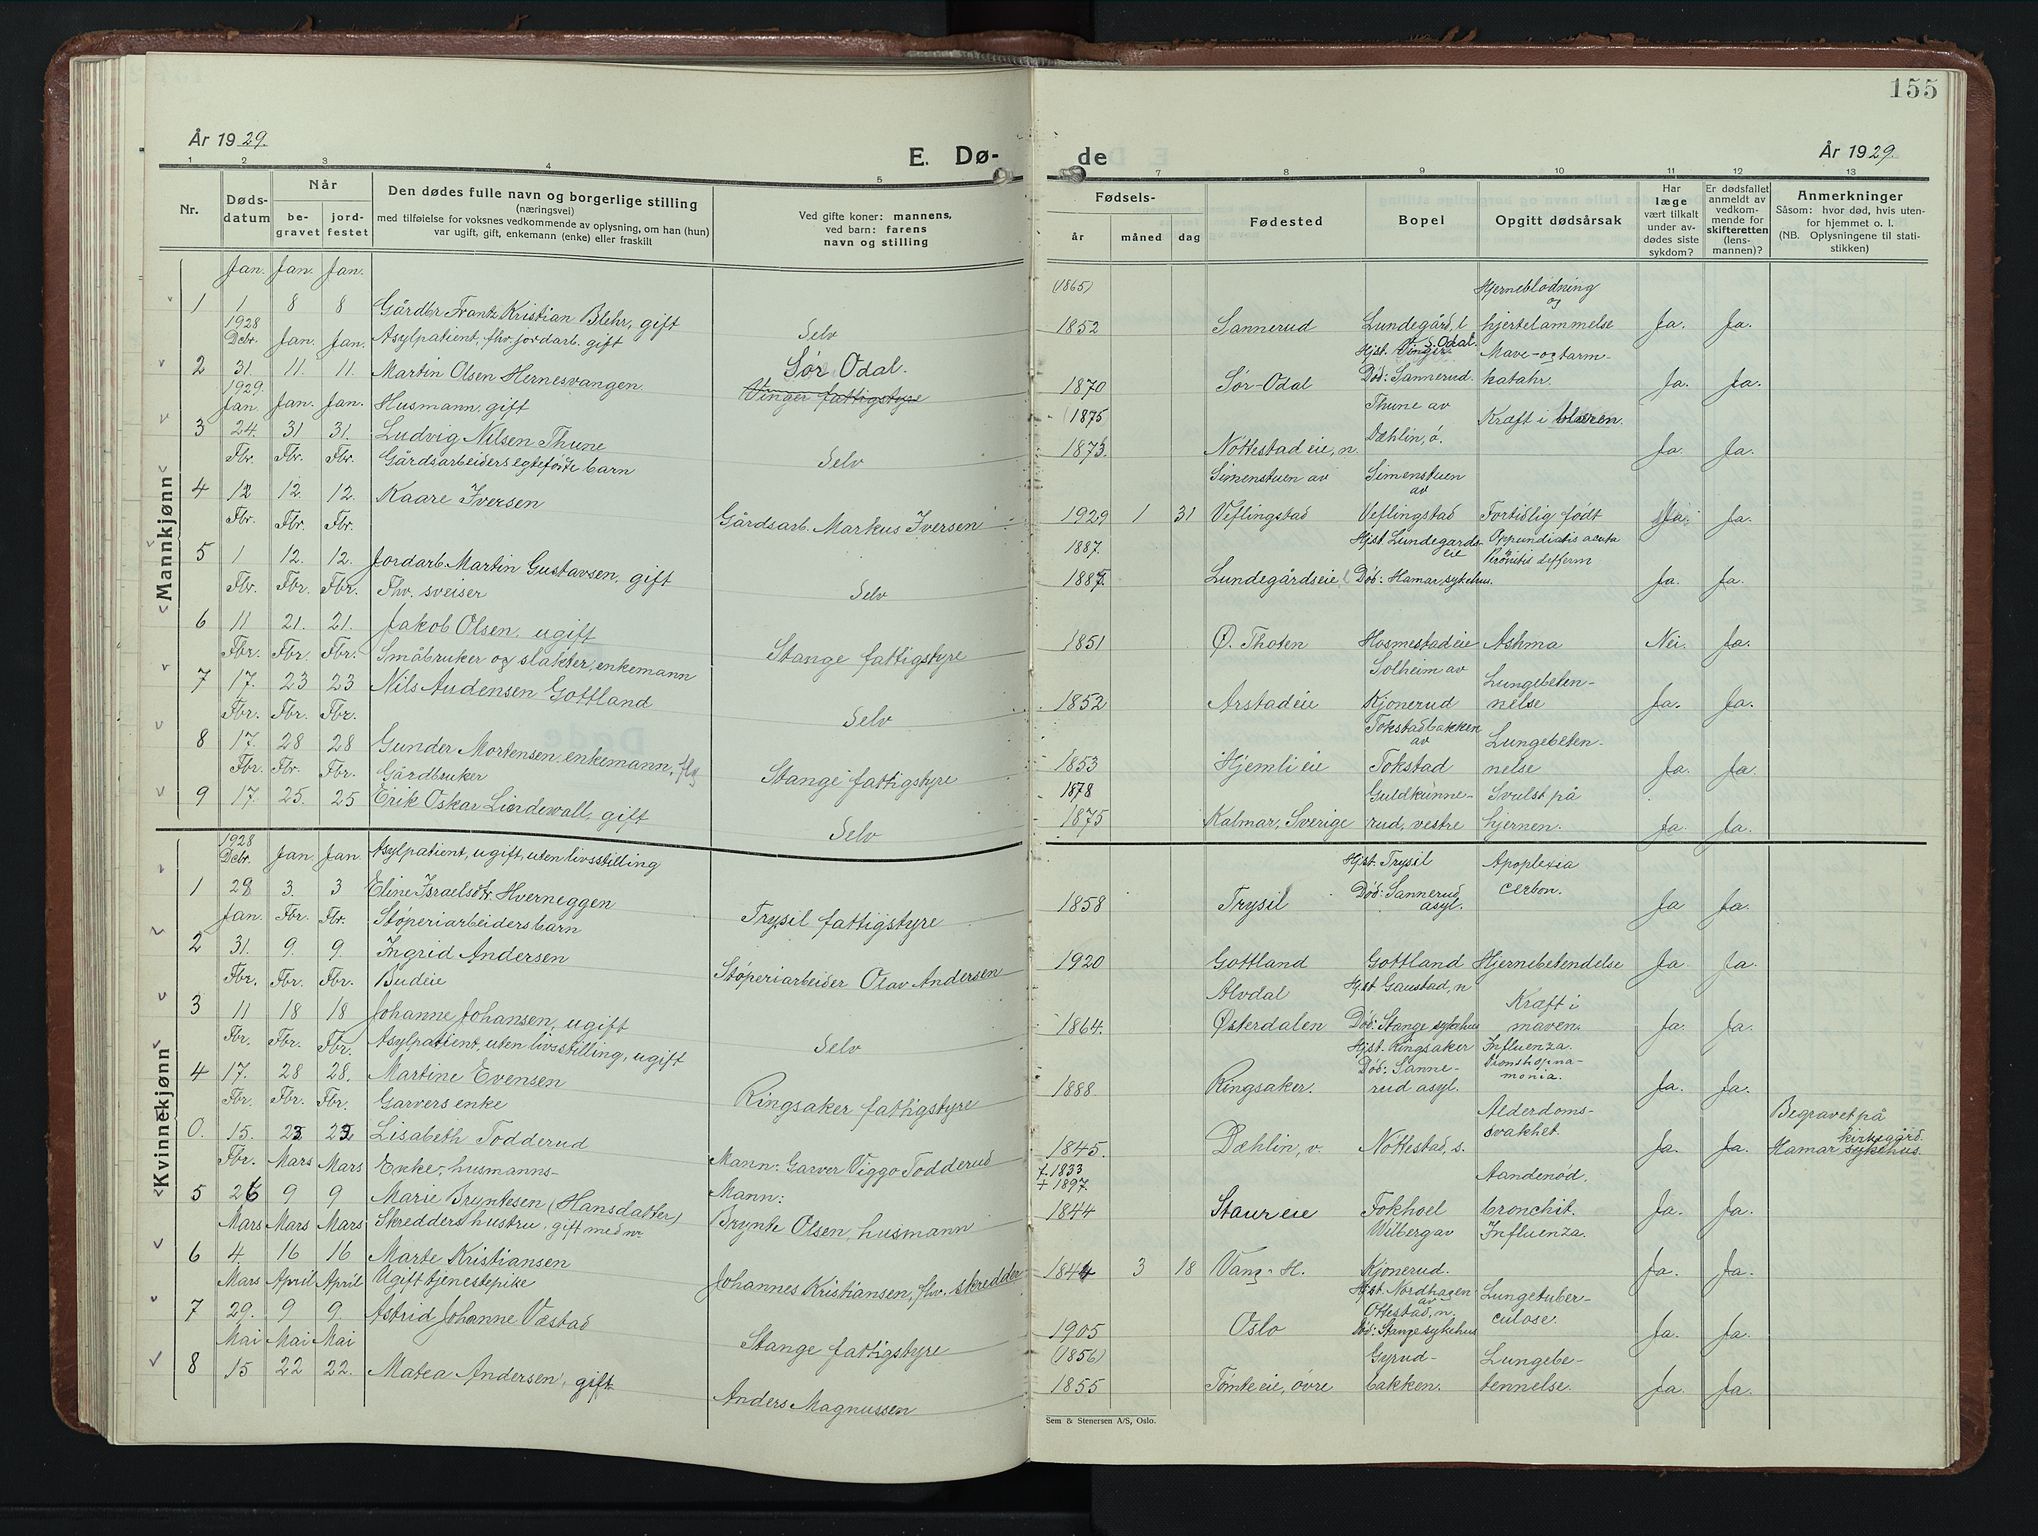 155
År 1929.
E. Dø-
de
År 1929.
1 2 3 4 5
7 8 9 10 11 12 13
Nr.
Døds-
datum
Når
be-
gravet
jord-
festet
Den dødes fulle navn og borgerlige stilling
(næringsvei)
med tilføielse for voksnes vedkommende av oplysning, om han (hun)
var ugift, gift, enkemann (enke) eller fraskilt
Ved gifte koner: mannens,
ved barn: farens
navn og stilling
Fødsels-
år
måned
dag
Fødested
Bopel
Opgitt dødsårsak
Har
læge
vært tilkalt
under av-
dødes siste
sykdom?
Er dødsfallet
anmeldt av
vedkom-
mende for
skifteretten
(lens-
mannen)?
Anmerkninger
Såsom: hvor død, hvis uten-
for hjemmet o. l.
(NB. Oplysningene til stati-
stikken)
Mannkjønn
Jan. Jan. Jan.
(1865) Hjerneblødning
og
1 1 8 8 Gårdbr Frantz Kristian Blehr, gift Selv 1852 Sannerud Lundegård, l hjertelammelse Ja. Ja.
1928
Debr. Jan. Jan. Asylpatient, fhv. jordarb. gift
Hjst. Vinger S. Odal. Mave- og tarm-
2 31. 11. 11. Martin Olsen Hernesvangen. Sør Odal. 1870 Sør-Odal Død: Sannerud. katahr. Ja. Ja.
Vinger fattigstyre
1929.
Jan. Jan. Jan. Husmann, gift
(1875 Thune av Kræft i blæren.
3 24. 31 31. Ludvig Nilsen Thune Selv 1873. Nøttestad eie, n. Dæhlin, ø. Ja. Ja.
Fbr. Fbr. Fbr. Gårdsarbeiders egtefødte barn
Simenstuen av Simenstuen
av
4 12 12. 12. Kaare Iversen Gårdsarb. Markus Iversen 1929 1 31 Veflingstad Veflingstad Fortidlig født Ja. Ja.
Fbr. Fbr. Fbr.
1887. Hjst. Lundegårds-
eie
5 1 12. 12. Jordarb. Martin Gustavsen, gift Selv 1887. Lundegårdseie Død: Hamar sykehus. Ja. Ja.
Fbr. Fbr. Fbr. Fhv. sveiser
6 11 21. 21. Jakob Olsen, ugift Stange fattigstyre 1851 Ø. Thoten Hosmestadeie Asthma Nei. Ja.
Fbr. Fbr. Fbr. Småbruker og slakter, enkemann
Solheim av Lungebeten-
7 17. 23 23 Nils Audensen Gottland Selv 1852 Arstadeie Kjonerud nelse Ja. Ja.
Fbr. Fbr. Fbr.
Tokstadbakken
av Lungebeten-
8 17. 28 28 Gunder Mortensen, enkemann, Stange fattigstyre 1853 Hjemli eie Tokstad nelse Ja. Ja.
Fbr. Fbr. Fbr. Gårdbruker
1878 Guldkunne- Svulst på
9 17. 25. 25 Erik Oskar Lindewall, gift Selv 1875 Kalmar, Sverige rud, vestre hjernen. Ja. Ja.
Kvinnekjønn
1928
Debr. Jan. Jan. Asylpatient, ugift, uten livsstilling
Hjst. Trysil Apoplexia
1 28 3. 3 Eline Israelsdtr. Hverneggen Trysil fattigstyre 1858 Trysil Død: Sannerud
asyl. Ja Ja.
Jan. Fbr. Fbr. Støperiarbeiders barn
2 31. 9. 9. Ingrid Andersen Støperiarbeider Olav Andersen 1920 Gottland Gottland Hjernebetendelse Ja Ja.
Fbr. Fbr. Fbr. Budeie
Alvdal Hjst Gaustad, n Kræft i
3 11 18 18 Johanne Johansen, ugift Selv 1864. Østerdalen Død: Stange sykehus maven. Ja. Ja.
Fbr. Fbr. Fbr. Asylpatient, uten livsstilling, ugift
Hjst. Ringsaker Influenza.
Død: Sanne-
4 17. 28 28. Martine Evensen Ringsaker fattigstyre 1888 Ringsaker. rud asyl. monia. Ja. Ja.
Fbr. Fbr. Fbr. Garvers enke
Alderdoms-
svakhet. Begravet på
0. 15. 23 23. Lisabeth Todderud Mann: Garver Viggo Todderud 1845. Dæhlin, v. Nøttestad, s. Ja. Ja. Hamar sykehus. kirkegård.
Fbr. Mars Mars Enke, husmanns-
f. 1833
+ 1897. Aandenød,
5 26 9 9 Marie Bryntesen (Hansdatter) Mann:
Brynte Olsen, husmann 1844 Staur eie Fokhoel bronchit. Ja. Ja.
Mars Mars Mars Skredders hustru, gift med nr.
Wilberg av Influenza.
6 4. 16 16 Marte Kristiansen Johannes Kristiansen, fhv. skredder 1844 3 18 Vang. H. Kjonerud. Ja. Ja.
Mars April April Ugift tjenestepike
Hjst. Nordhagen
av Lungetuber-
Ottestad, n. culose.
7 29. 9 9. Astrid Johanne Væstad Stange fattigstyre 1905 Oslo Død: Stange sykehus Ja. Ja.
Mai Mai Mai
(1856) Gyrud- Lungebe-
8 15 22 22. Matea Andersen, gift Anders Magnussen 1855 Tømte eie, øvre bakken. tennelse. Ja. Ja.
Sem & Stenersen A/S, Oslo.